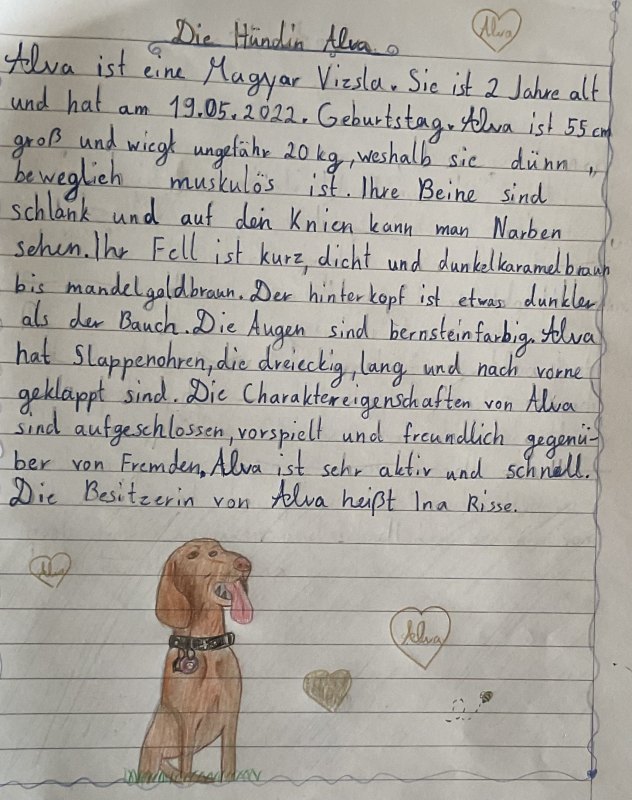 Die Hündin Alva
Alva
Alva ist eine Magyar Vizsla. Sie ist 2 Jahre alt
und hat am 19.05.2022. Geburtstag. Alva ist 55cm
groß und wiegt ungefähr 20 kg, weshalb sie dünn,
beweglich muskulös ist. Ihre Beine sind
schlank und auf den Knien kann man Narben
sehen. Ihr Fell ist kurz, dicht und dunkelkaramelbraun
bis mandelgoldbraun. Der hinterkopf ist etwas dunkler
als der Bauch. Die Augen sind bernsteinfarbig. Alva
hat Slappenohren, die dreieckig, lang und nach vorne
geklappt sind. Die Charaktereigenschaften von Alva
sind aufgeschlossen, vorspielt und freundlich gegenü-
ber von Fremden. Alva ist sehr aktiv und schnell.
Die Besitzerin von Alva heißt Ina Risse.
Alva
Alva